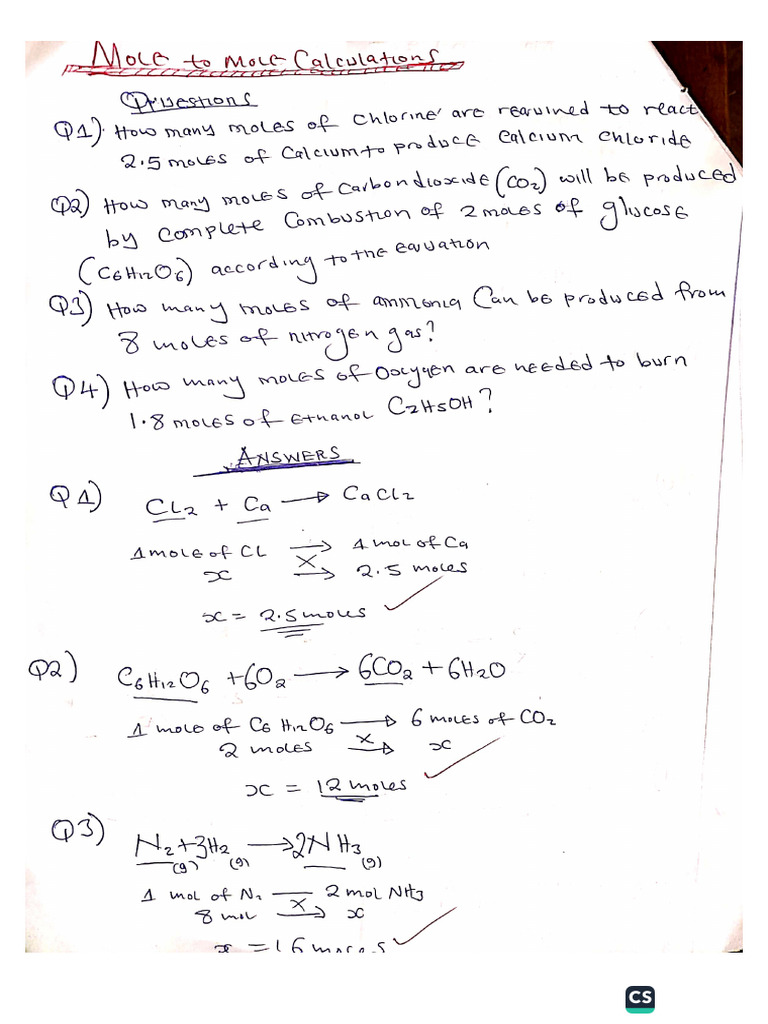 Mole to Mole Calculations
Questions
Q1) How many moles of chlorine are required to react
2.5 moles of Calcium to produce Calcium Chloride
Q2) How many moles of Carbondioxide (CO2) will be produced
by complete Combustion of 2 moles of glucose
(C6H12O6) according to the equation
Q3) How many moles of ammonia Can be produced from
8 moles of nitrogen gas?
Q4) How many moles of Oxygen are needed to burn
1.8 moles of ethanol C2H5OH?
ANSWERS
Q1) CL2 + Ca → CaCl2
1 mole of CL → 1 mol of Ca
x X→ 2.5 moles
x = 2.5 moles ✓
Q2) C6H12O6 + 6O2 → 6CO2 + 6H2O
1 mole of C6H12O6 → 6 moles of CO2
2 moles X→ x
x = 12 moles ✓
Q3) N2(g) + 3H2(g) → 2NH3(g)
1 mol of N2 — 2 mol NH3
8 mol X→ x
x = 16 moles ✓
CS